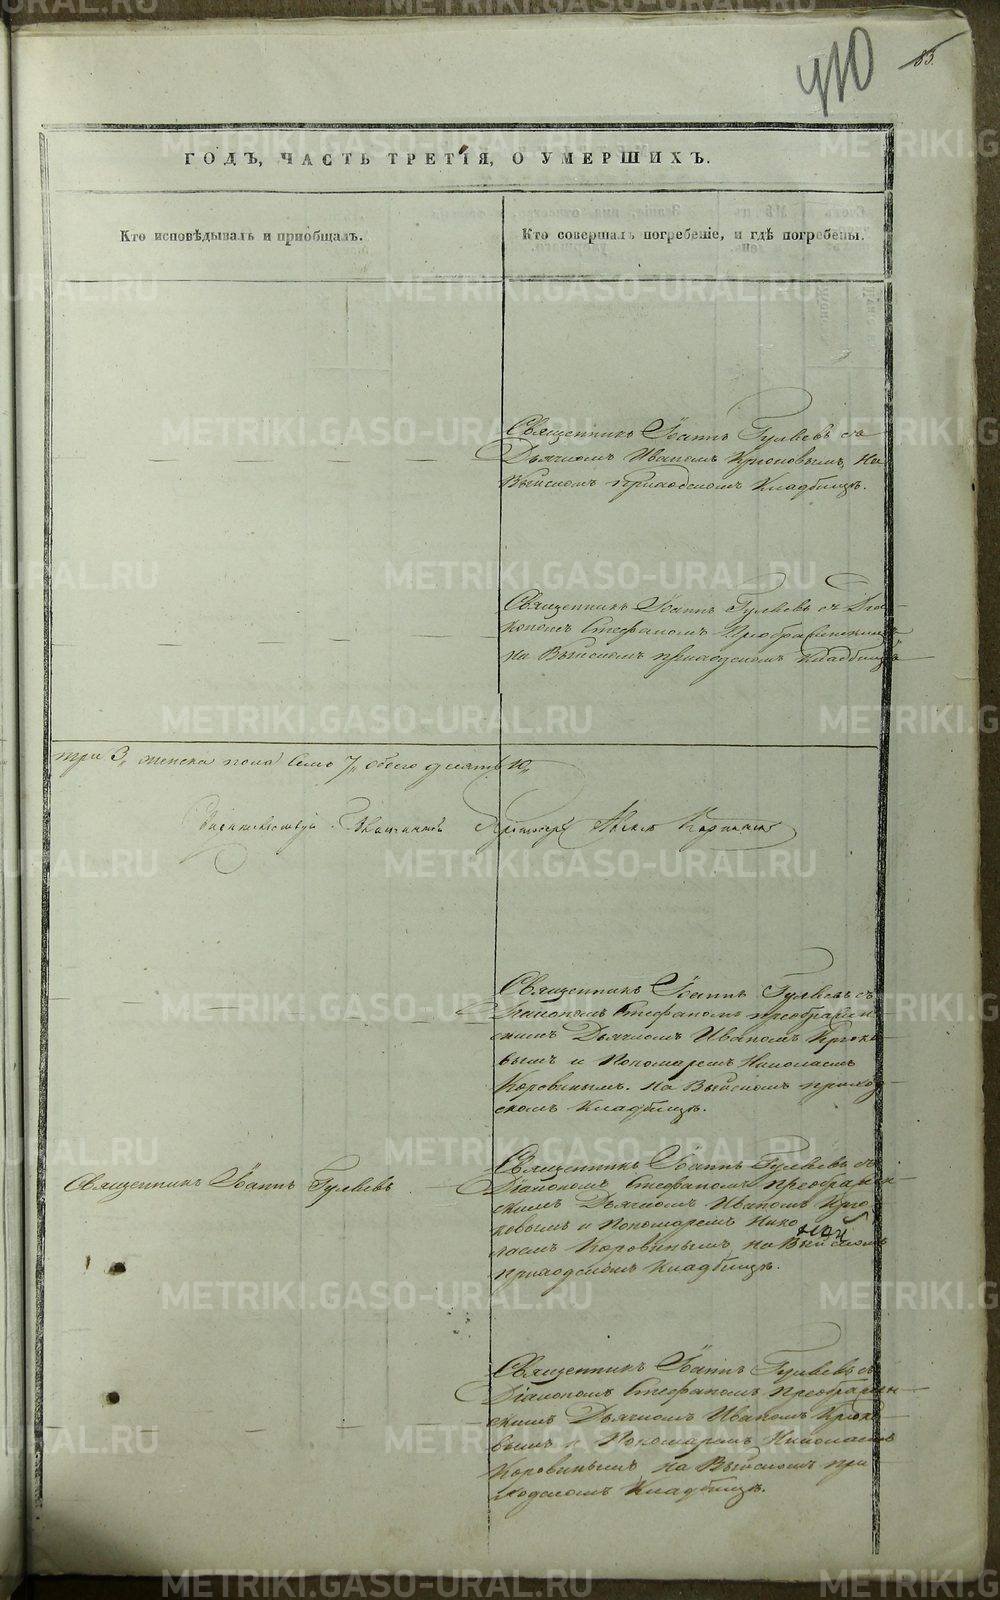 410
85.
ГОДЪ, ЧАСТЬ ТРЕТІЯ, О УМЕРШИХЪ.
Кто исповѣдывалъ и приобщалъ.
Кто совершалъ погребеніе, и гдѣ погребены.
Священникъ Іоаннъ Гуляевъ съ
Дьячкомъ Иваномъ Крюковымъ, на
Выйскомъ приходскомъ кладбищѣ.
Священникъ Іоаннъ Гуляевъ съ Діа-
кономъ Стефаномъ Преображенскимъ
на Выйскомъ приходскомъ кладбищѣ
три 3, женска пола семь 7, обоего десять 10,
Священникъ Іоаннъ Гуляевъ съ
Діакономъ Стефаномъ Преображен-
скимъ Дьячкомъ Иваномъ Крюко-
вымъ и Пономаремъ Николаемъ
Коровинымъ. на Выйскомъ приход-
скомъ кладбищѣ.
Священникъ Іоаннъ Гуляевъ
Священникъ Іоаннъ Гуляевъ съ
Діакономъ Стефаномъ Преображен-
скимъ Дьячкомъ Иваномъ Крю-
ковымъ и Пономаремъ Нико-
лаемъ Коровинымъ, на Выйскомъ
приходскомъ кладбищѣ.
Священникъ Іоаннъ Гуляевъ съ
Діакономъ Стефаномъ Преображен-
скимъ Дьячкомъ Иваномъ Крюко-
вымъ и Пономаремъ Николаемъ
Коровинымъ, на Выйскомъ при-
ходскомъ кладбищѣ.
METRIKI.GASO-URAL.RU